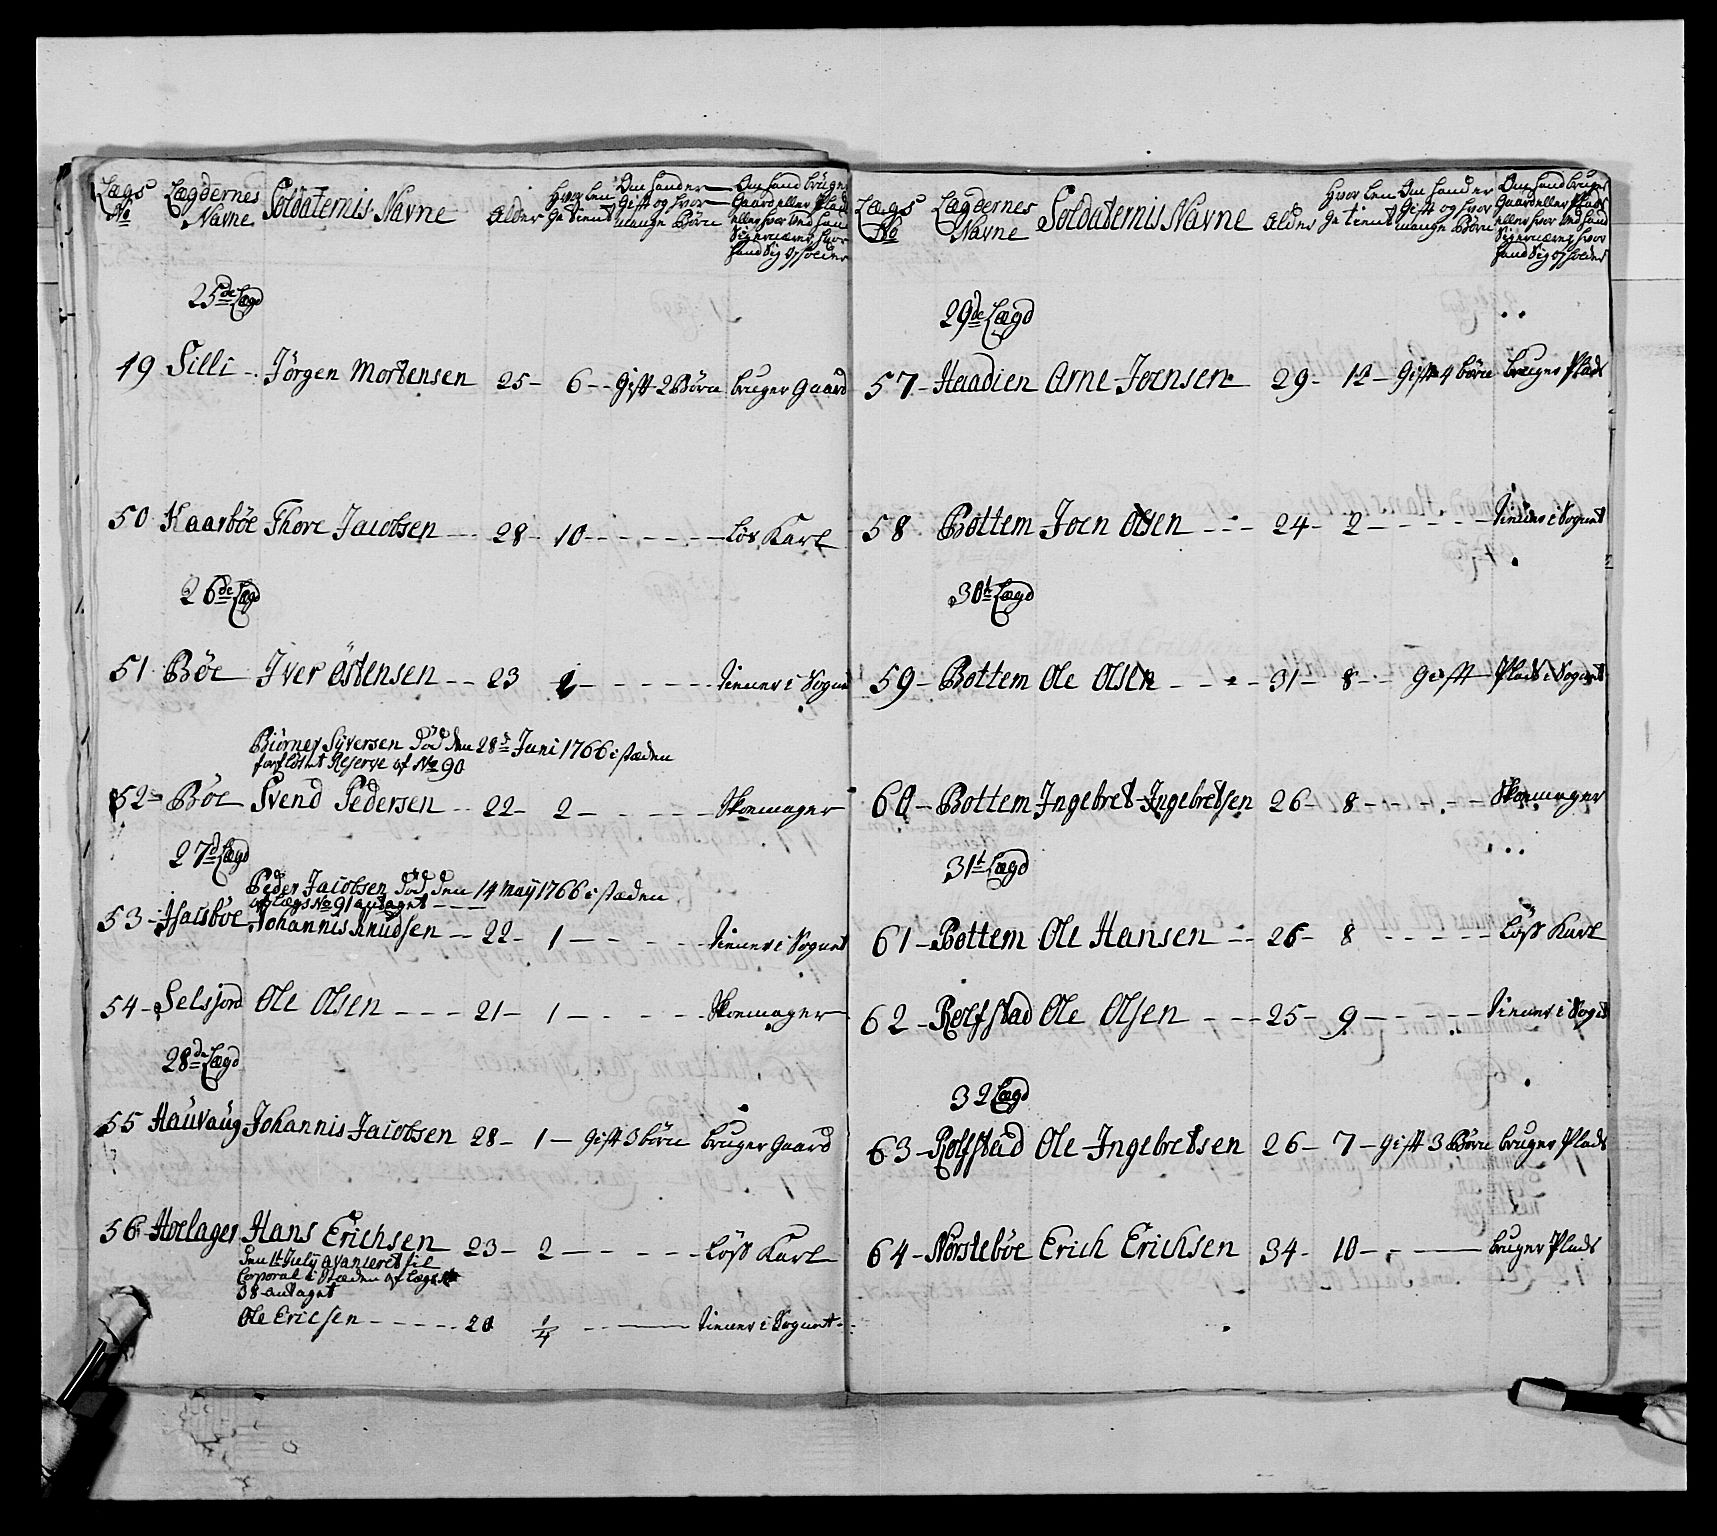 Lægs No | Lægdernes Navne | Soldaternis Navne | Alder | Hvor Længe tient | Om hand er Gift og hvor mange Børn | Om hand bruger Gaard eller Plads eller hvor ved hand Sig ernærer hvor hand Sig opholder
25de Lægd
49 Silli - Jörgen Mortensen 25 - 6 - Gift 2 Börn bruger Gaard
50 Kaarböe Thore Jacobsen - - 28 - 10 - - - - - Lös Karl
26de Lægd
51 Böe Iver Östensen - - 23 1 - - - - - tiener i Sognet
Biörner Syversen död den 28de Juni 1766 i stæden
forflöttet Reserve af No 90
52 - Böe Svend Pedersen - - 22 - 2 - - - - - Skoemager
27de Lægd
Peder Jacobsen död den 14 May 1766 i stæden
af Lægs No 91 antaget
53 - Johannis Knudsen - - 22 - 1 - - - - - tiener i Sognet
54 - Selsjord Ole Olsen - - - 21 - 1 - - - - - Skoemager
28de Lægd
55 Hauvaug Johannis Jacobsen 28 - 1 - Gift 3 börn bruger Gaard
56 Hoelager Hans Erichsen 23 - 2 - - - - - Löss Karl
Den 1t July avanseret til
Corporal i Stæden af Lægs No
38 antaget
Ole Ericsen - - - - - 20 1/4 - - - tiener i Sognet
Lægs No | Lægdernes Navne | Soldaternis Navne | Alder | Hvor Længe tient | Om hand er Gift og hvor mange Börn | Om hand bruger Gaard eller Plads eller hvor ved hand Sig ernærer hvor hand Sig opholder
29de Lægd
57 - Haadien Arne Joensen 29 - 12 - Gift 4 börn bruger Plads
58 Bottem Joen Olsen - - - 24 - 2 - - - - - tiener i Sognet
30t Lægd
59 - Bottem Ole Olsen - - - - 31 - 8 - - Gift - Plads i Sognet
60 - Bottem Ingebret Ingebretsen 26 - 8 - - - - - Skoemager
31t Lægd
61 - Bottem Ole Hansen - - 26 - 8 - - - - - Löss Karl
62 - Rolfstad Ole Olsen - - - 25 - 9 - - - - - tiener i Sognet
32 Lægd
63 - Rolfstad Ole Ingebretsen 26 - 7 - Gift 3 Börn bruger Plads
64 - Norsteböe Erich Erichsen 34 - 10 - - - bruger Plads